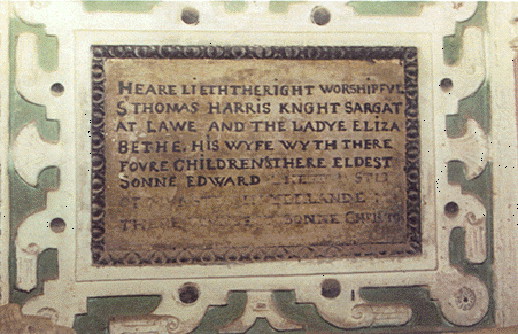 HEARE LIETH THE RIGHT WORSHIPFUL
S THOMAS HARRIS KNGHT SARGAT
AT LAWE AND THE LADYE ELIZA
BETHE, HIS WYFE WYTH THERE
FOVRE CHILDREN THERE ELDEST
SONNE EDWARD
SONNE